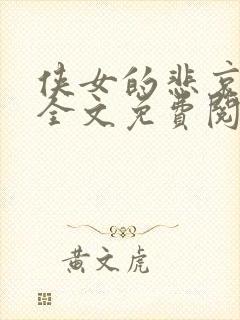 侠女的悲哀
全文免費閱
黄文虎